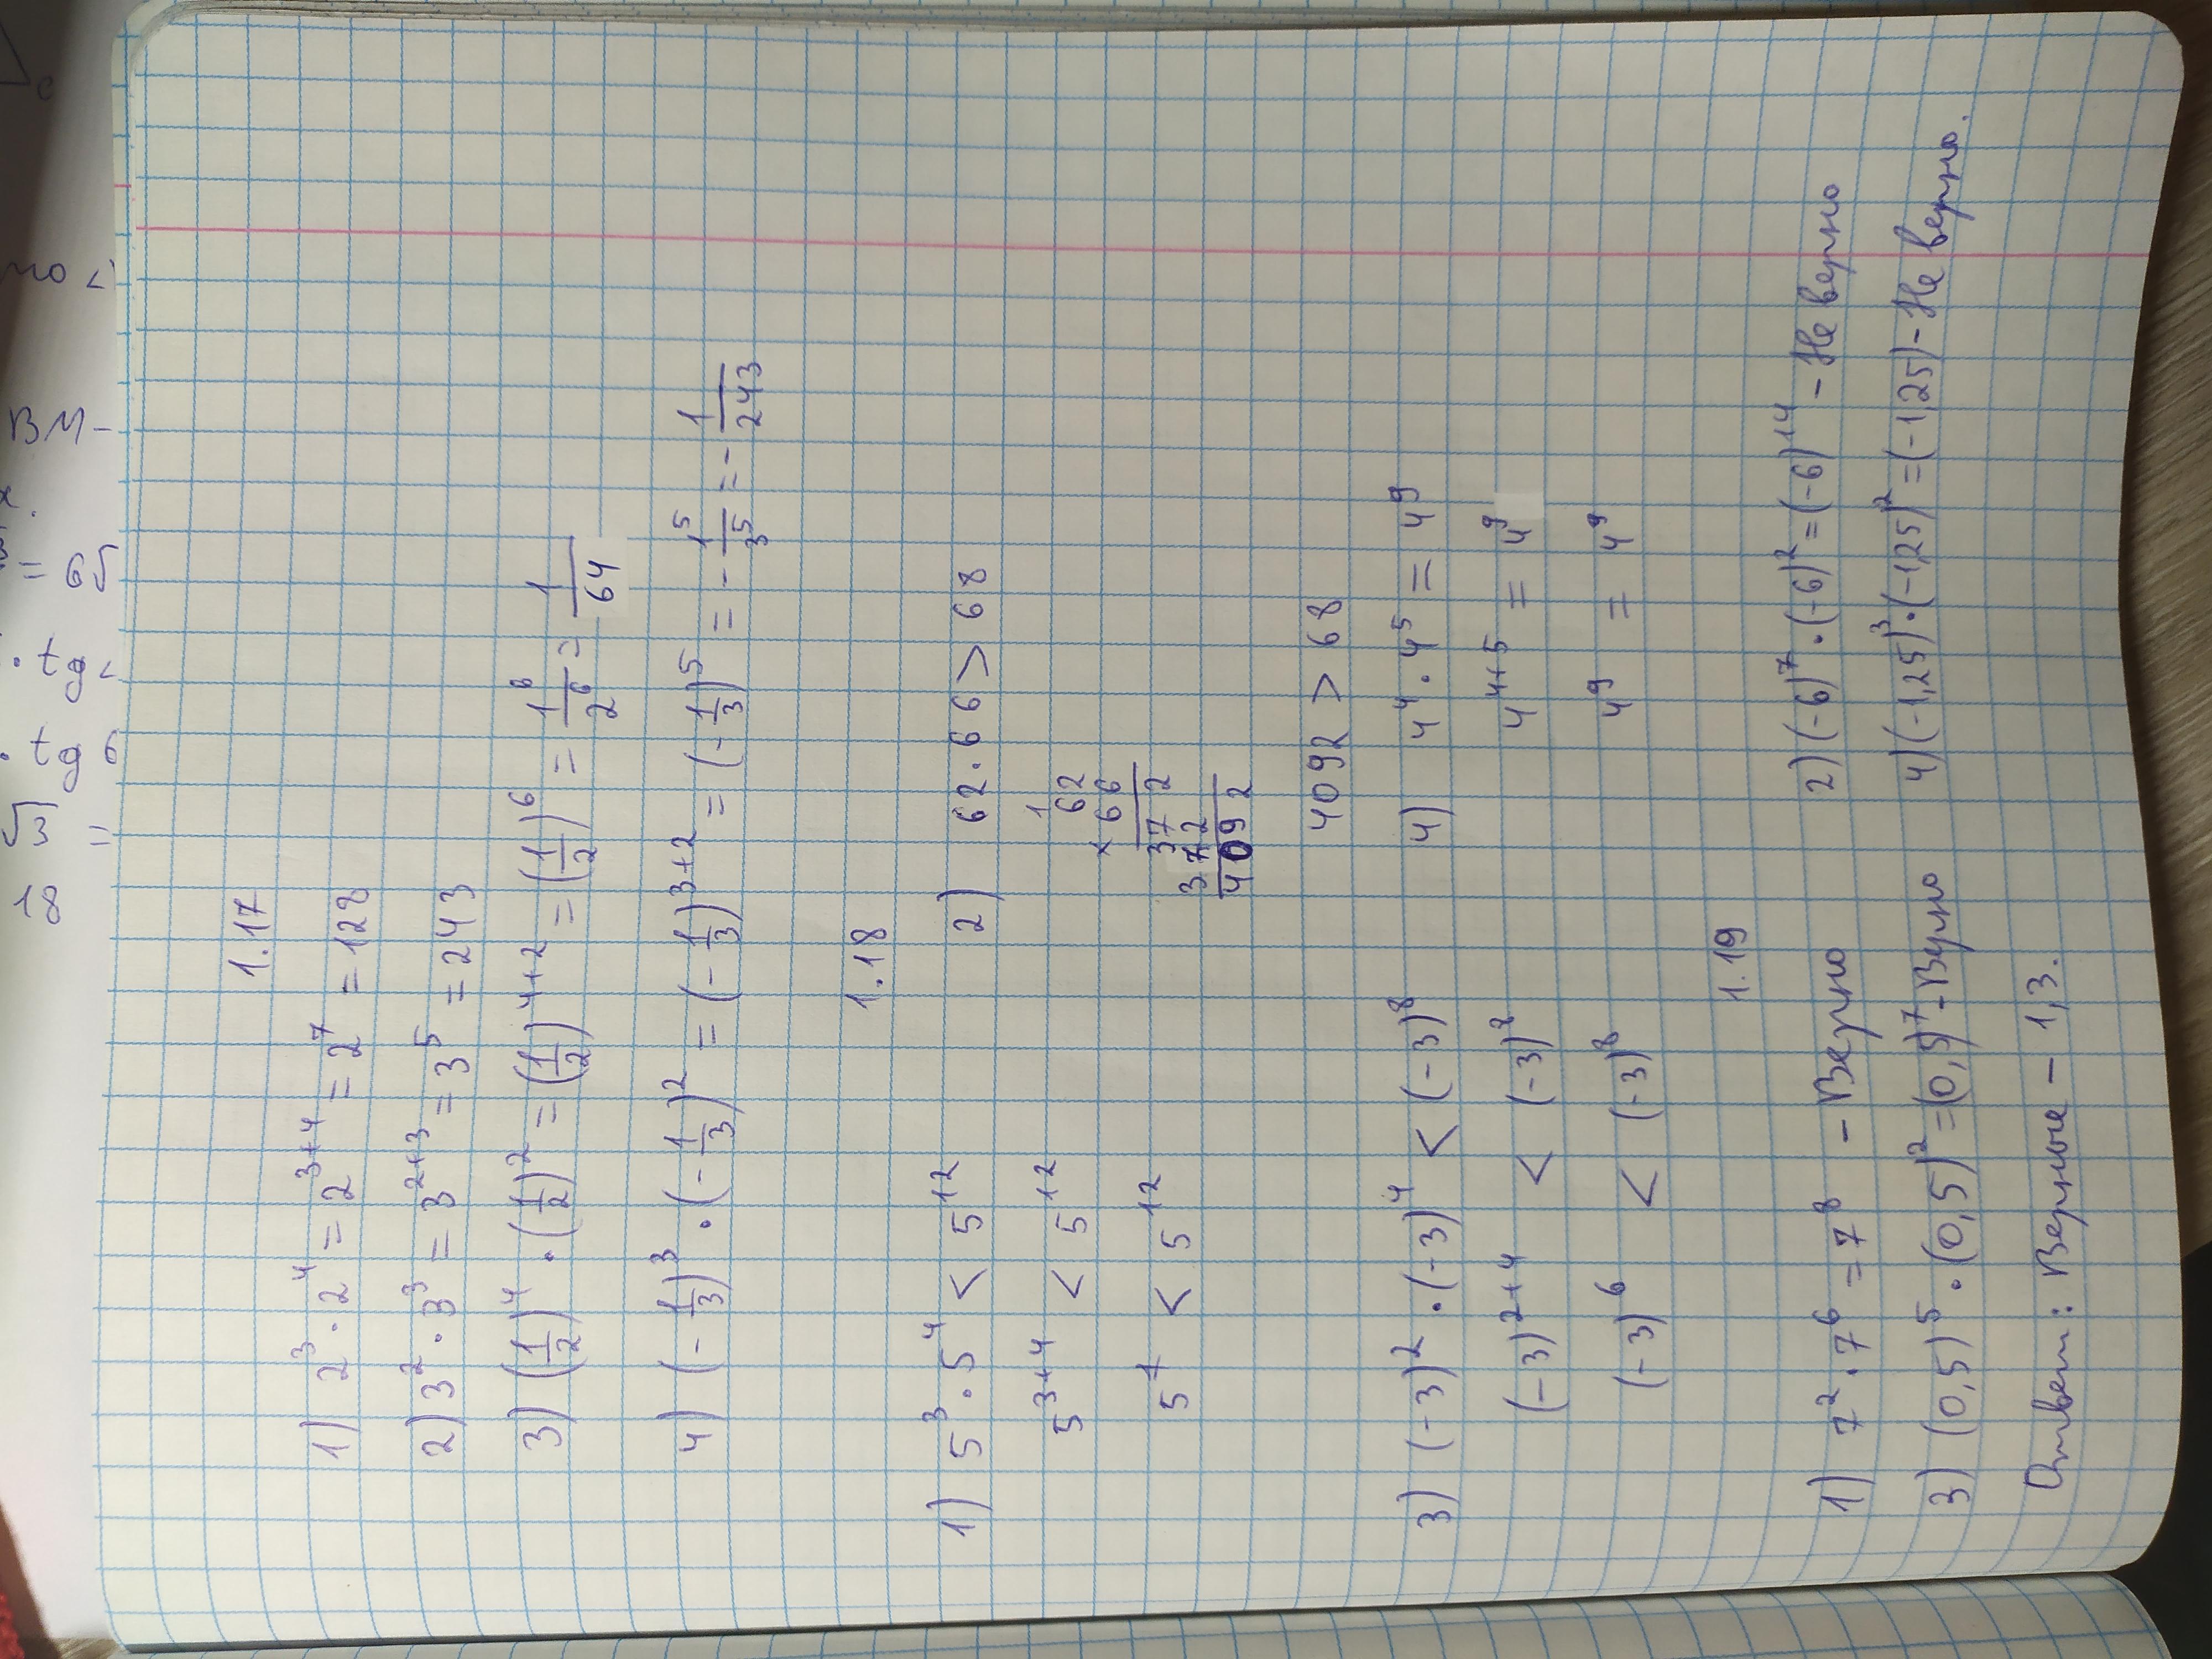 1.17
1) 2³·2⁴ = 2³⁺⁴ = 2⁷ = 128
2) 3²·3³ = 3²⁺³ = 3⁵ = 243
3) (1/2)⁴·(1/2)² = (1/2)⁴⁺² = (1/2)⁶ = 1⁶/2⁶ = 1/64
4) (-1/3)³·(-1/3)² = (-1/3)³⁺² = (-1/3)⁵ = -1⁵/3⁵ = -1/243
1.18
1) 5³·5⁴ < 5¹²
5³⁺⁴ < 5¹²
5⁷ < 5¹²
2) 62·66 > 68
1
62
× 66
372
372
4092
4092 > 68
3) (-3)²·(-3)⁴ < (-3)⁸
(-3)²⁺⁴ < (-3)⁸
(-3)⁶ < (-3)⁸
4) 4⁴·4⁵ = 4⁹
4⁴⁺⁵ = 4⁹
4⁹ = 4⁹
1.19
1) 7²·7⁶ = 7⁸ - Верно
2) (-6)⁷·(-6)² = (-6)¹⁴ - Не верно
3) (0,5)⁵·(0,5)² = (0,5)⁷ - Верно
4) (-1,25)³·(-1,25)² = (-1,25) - Не верно.
Ответ: Верные - 1,3.
BM-
= 65
· tg
· tg 6
√3 =
18